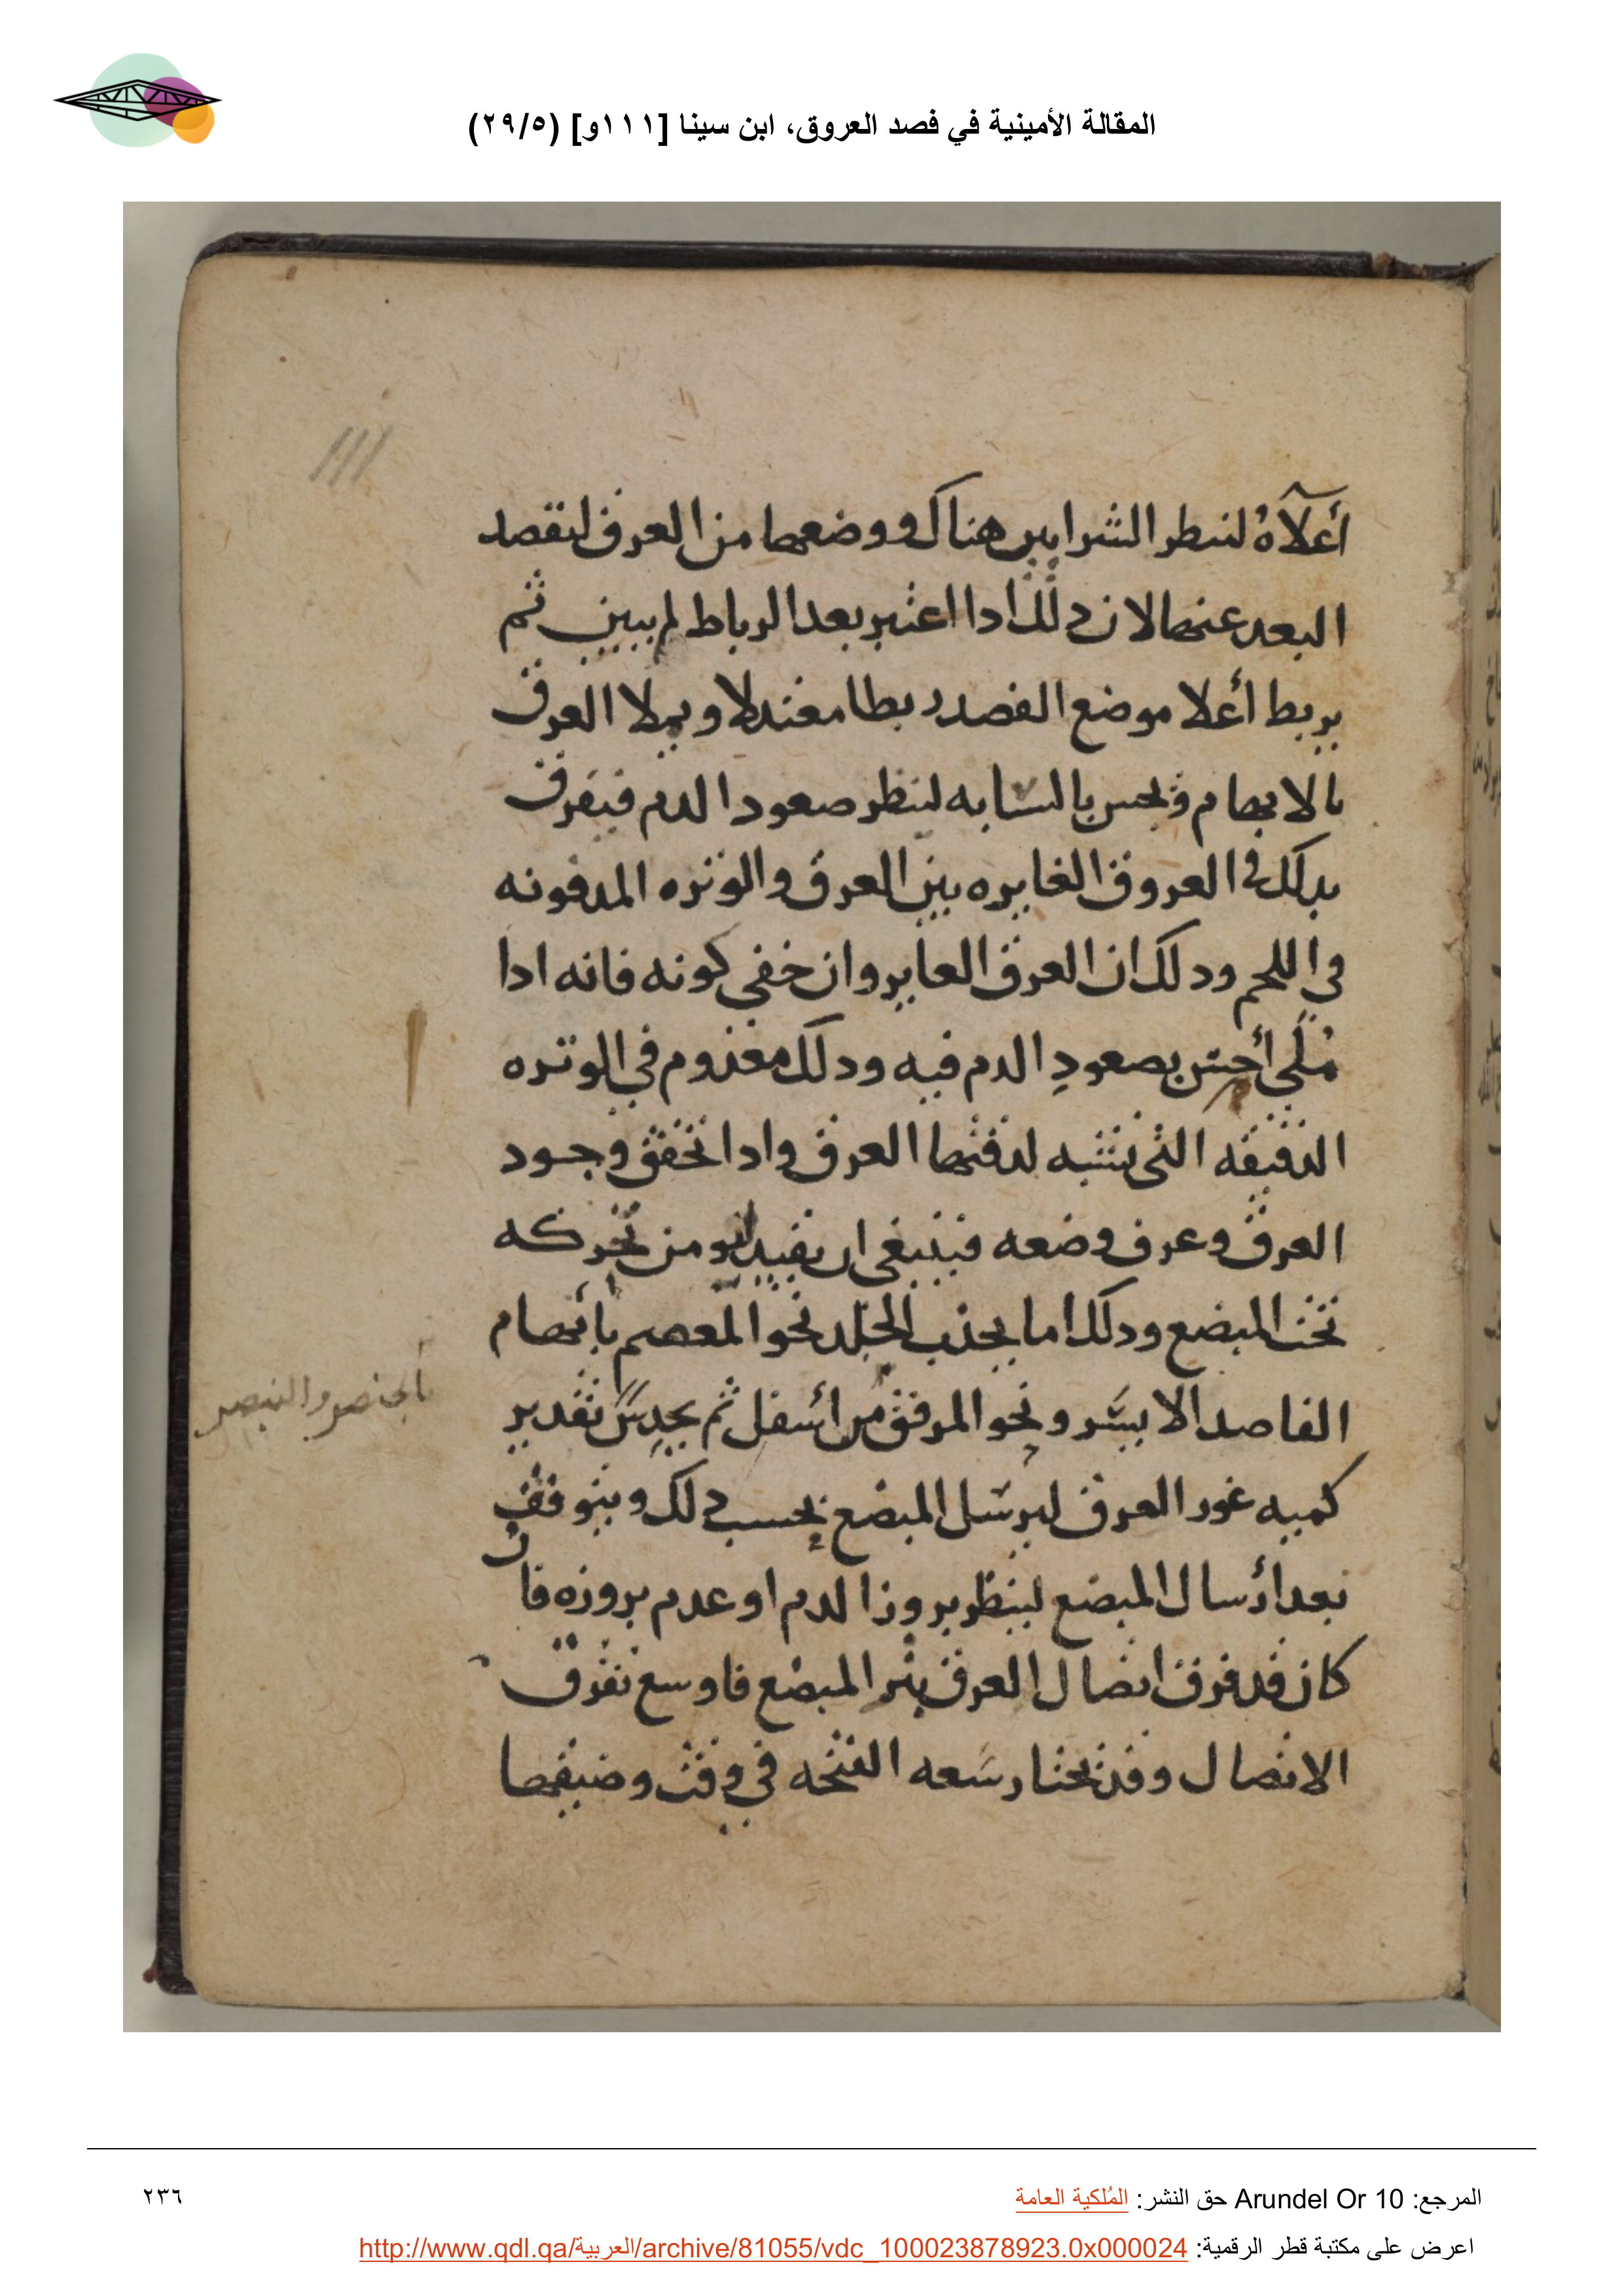 المقالة الأمينية في فصد العروق، ابن سينا [١١١و] (٢٩/٥)
111
أعلاهُ لننطر الشرايين هناك ووضعها من العرق لتقصد
البعد عنها لان دلك ادا اعتبر بعد الرباط لم يبين ثم
يربط أعلا موضع الفصد ربطا معتدلا ويملا العرق
بالابهام ويجس بالسبابه لينظر صعود الدم فيفرق
بدلك في العروق الغايره بين العرق والوتره المدفونه
في اللحم ودلك ان العرق الغاير وان خفي كونه فانه ادا
مُلي أحس بصعود الدم فيه ودلك معدوم في الوتره
الدقيقه التي تشبه لدقتها العرق وادا تحقق وجود
العرق وعرف وضعه فينبغي ان يقيد من تحركه
تحت المبضع ودلك اما بجذب الجلد نحو المعصم بابهام
الفاصد الايسر ونحو المرفق من اسفل ثم يحدس تقدير
بالخنصر والبنصر
كميه غور العرق ليرسل المبضع بحسب دلك ويتوقف
بعد ارسال المبضع لينظر بروز الدم او عدم بروزه فان
كان قد فرق اتصال العرق بتر المبضع فاوسع تفرق
الاتصال وقد يختار سعه الفتحه في وقت وضيقها
المرجع: Arundel Or 10 حق النشر: المُلكية العامة
٢٣٦
اعرض على مكتبة قطر الرقمية: http://www.qdl.qa/العربية/archive/81055/vdc_100023878923.0x000024